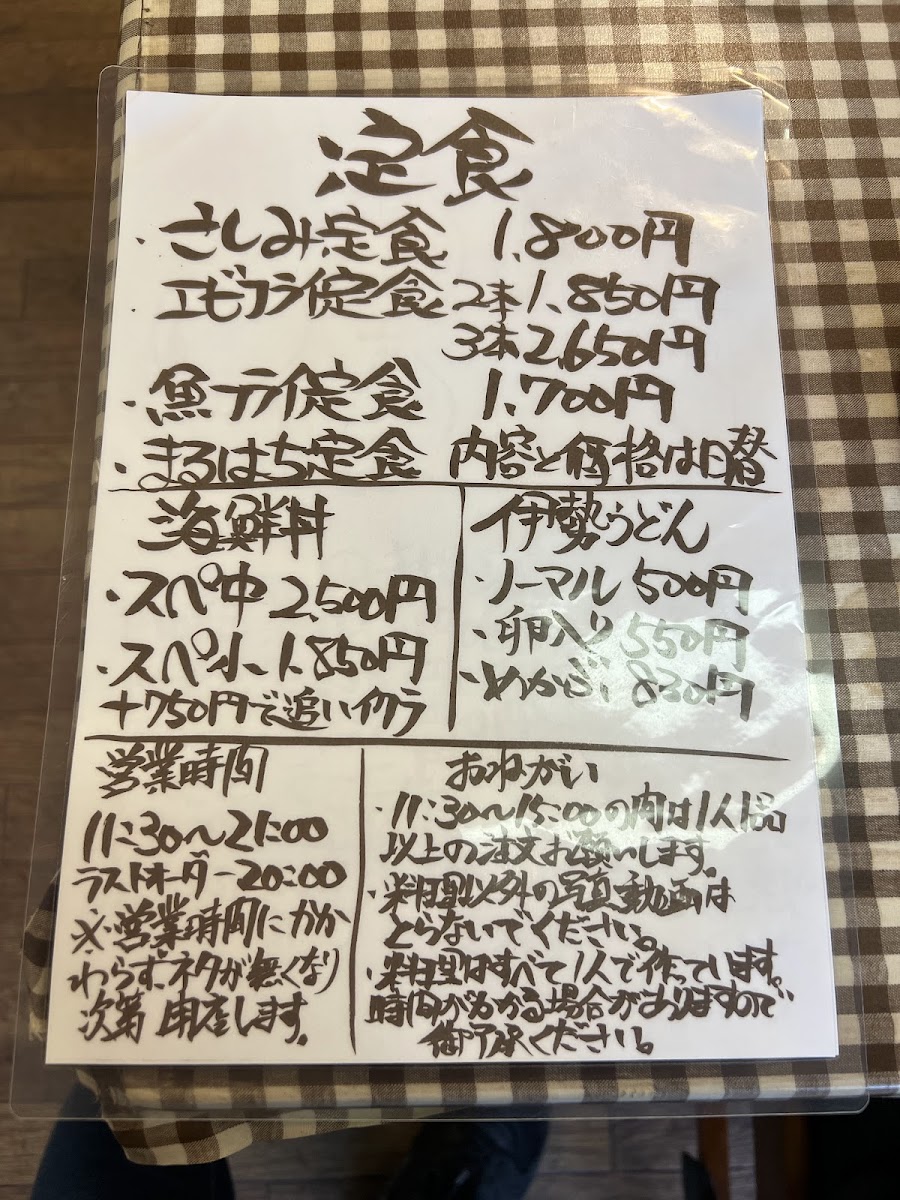 定食
・さしみ定食 1,800円
エビフライ定食 2本 1,850円
3本 2,650円
・魚フライ定食 1,700円
・まるはち定食 内容と価格は日替
海鮮丼
・スペ中 2,500円
・スペ小 1,850円
+750円で追いイクラ
伊勢うどん
・ノーマル 500円
・卵入り 550円
・めかぶ 830円
営業時間
11:30〜21:00
ラストオーダー20:00
※営業時間にかか
わらず、ネタが無くなり
次第閉店します。
おねがい
・11:30〜15:00の間は1人1品
以上の注文お願いします。
・料理以外の写真動画は
とらないでください。
・料理はすべて1人で作っています。
時間がかかる場合がありますので
御了承ください。